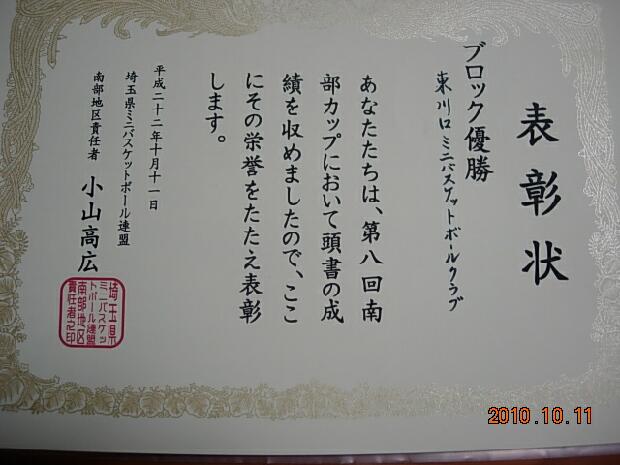 表彰状
ブロック優勝
東川口ミニバスケットボールクラブ
あなたたちは、第八回南
部カップにおいて頭書の成
績を収めましたので、ここ
にその栄誉をたたえ表彰
します。
平成二十二年十月十一日
埼玉県ミニバスケットボール連盟
南部地区責任者 小山高広
埼玉県
ミニバスケッ
トボール連盟
南部地区
責任者之印
2010.10.11